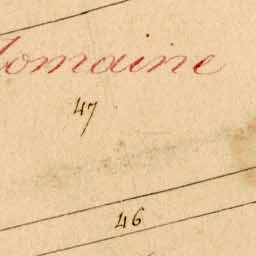 omaine
47
46